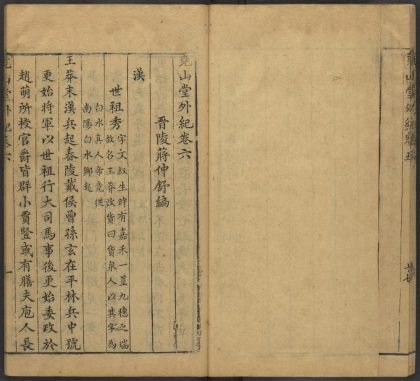 堯山堂外紀卷五
堯山堂外紀卷六
晉陵蔣仲舒編
漢
世祖秀
字文叔生時有嘉禾一莖九穗之瑞
故名王莽改貨曰貨泉人以其字為
白水真人帝竟從
南陽白水鄉起
王莽末漢兵起舂陵戴侯曾孫玄在平林兵中號
更始將軍以世祖行大司馬事後更始委政於
趙萌所授官爵皆群小賈豎或有膳夫庖人長
堯山堂外紀卷六
一